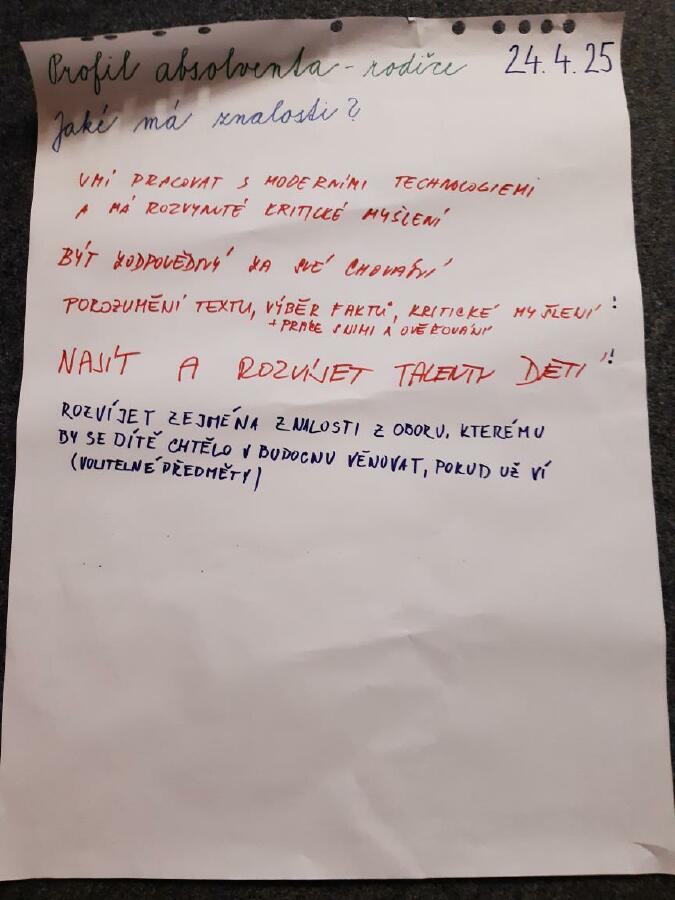 Profil absolventa - rodiče 24.4.25
Jaké má znalosti?
UMÍ PRACOVAT S MODERNÍMI TECHNOLOGIEMI
A MÁ ROZVYNUTÉ KRITICKÉ MYŠLENÍ
BÝT ZODPOVĚDNÝ ZA SVÉ CHOVÁNÍ
POROZUMĚNÍ TEXTU, VÝBĚR FAKTŮ, KRITICKÉ MYŠLENÍ!
+ PRÁCE S NIMI A OVĚŘOVÁNÍ
NAJÍT A ROZVÍJET TALENTY DĚTÍ!!
ROZVÍJET ZEJMÉNA ZNALOSTI Z OBORU, KTERÉMU
BY SE DÍTĚ CHTĚLO V BUDOCNU VĚNOVAT, POKUD UŽ VÍ
(VOLITELNÉ PŘEDMĚTY)